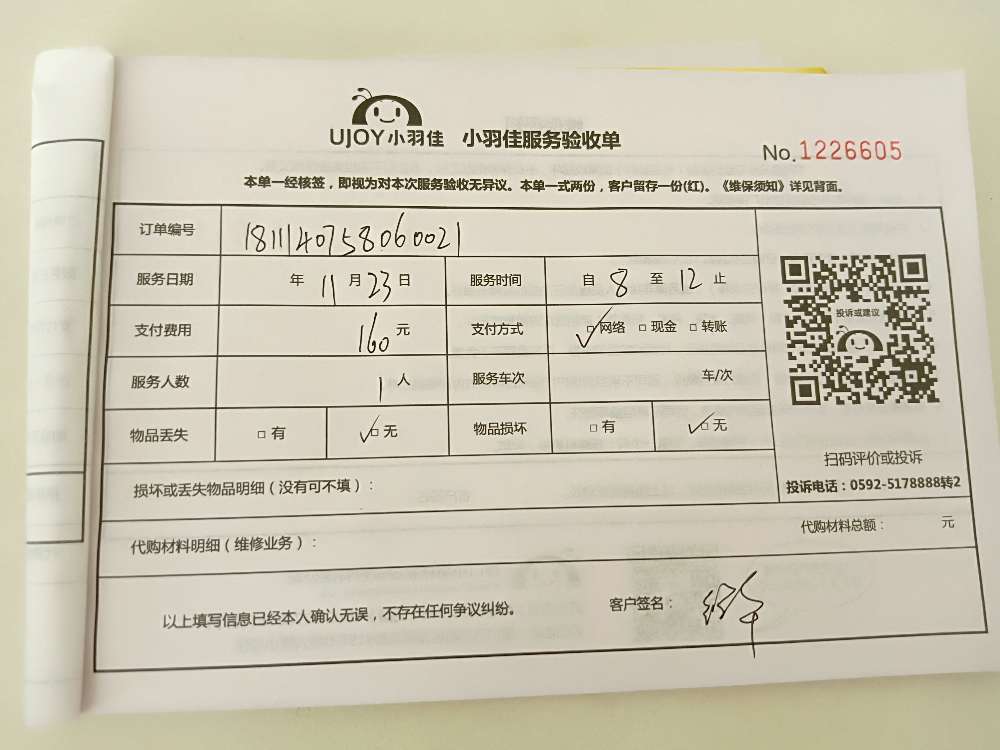 UJOY小羽佳 小羽佳服务验收单
No.1226605
本单一经核签，即视为对本次服务验收无异议。本单一式两份，客户留存一份(红)。《维保须知》详见背面。
订单编号 1811140758060021
服务日期 年 11 月 23 日 服务时间 自 8 至 12 止
投诉或建议
支付费用 160 元 支付方式 ✓□ 网络 □ 现金 □ 转账
服务人数 1 人 服务车次 车/次
物品丢失 □ 有 ✓□ 无 物品损坏 □ 有 ✓□ 无
扫码评价或投诉
投诉电话：0592-5178888转2
损坏或丢失物品明细（没有可不填）：
代购材料明细（维修业务）： 代购材料总额： 元
以上填写信息已经本人确认无误，不存在任何争议纠纷。 客户签名：